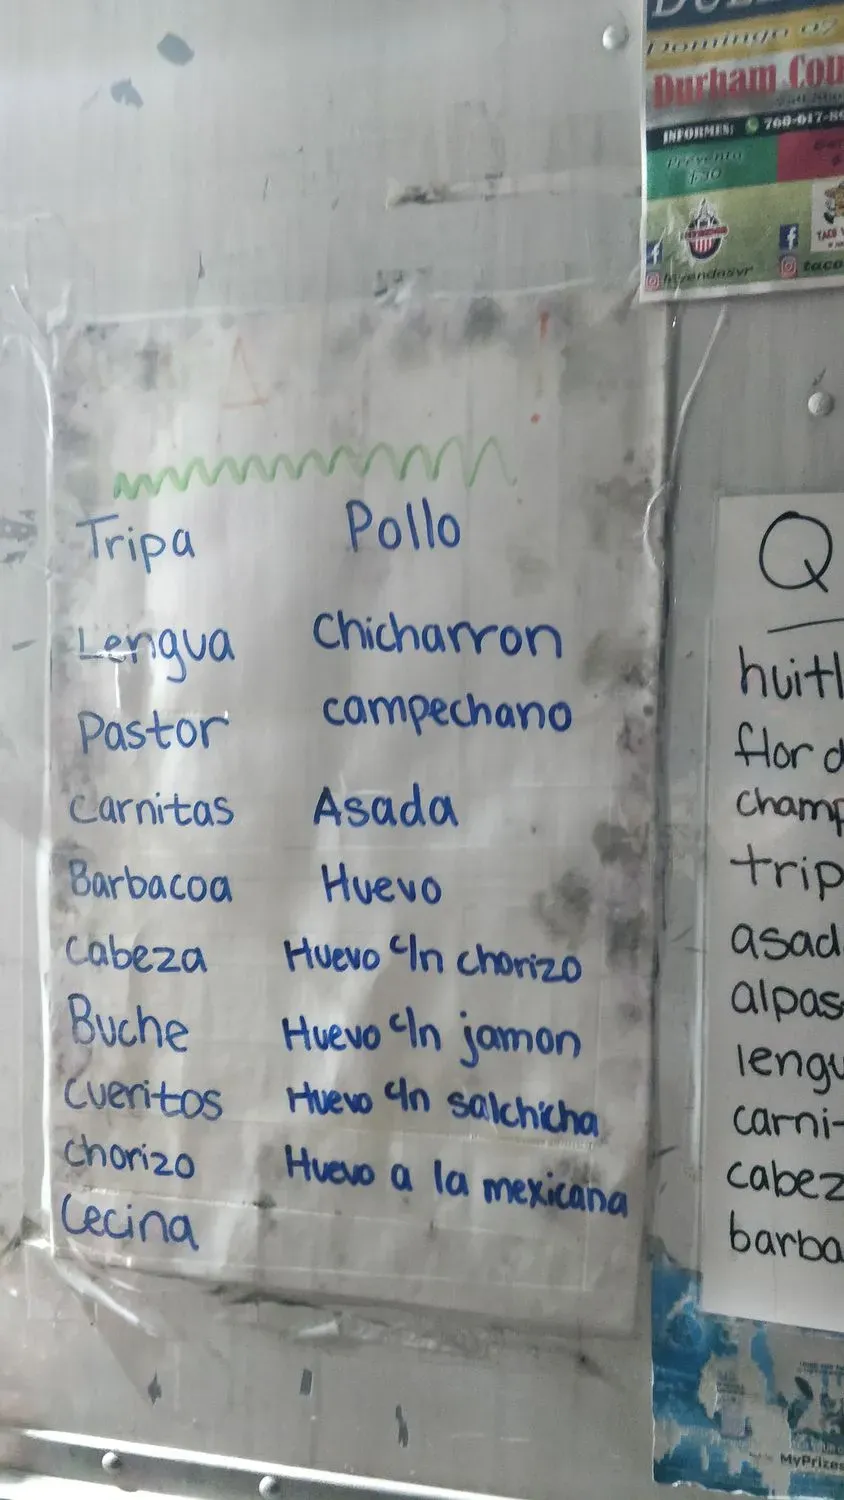 Domingo 02
Durham Cou
INFORMES: 760-617-8
Preventa
$30
TACO
taco
Tripa
Lengua
Pastor
Carnitas
Barbacoa
Cabeza
Buche
Cueritos
Chorizo
Cecina
Pollo
Chicharron
campechano
Asada
Huevo
Huevo c/n chorizo
Huevo c/n jamon
Huevo c/n salchicha
Huevo a la mexicana
Q
huitl
flor d
champ
trip
asad
alpas
lengu
carni-
cabez
barba
MyPrizes